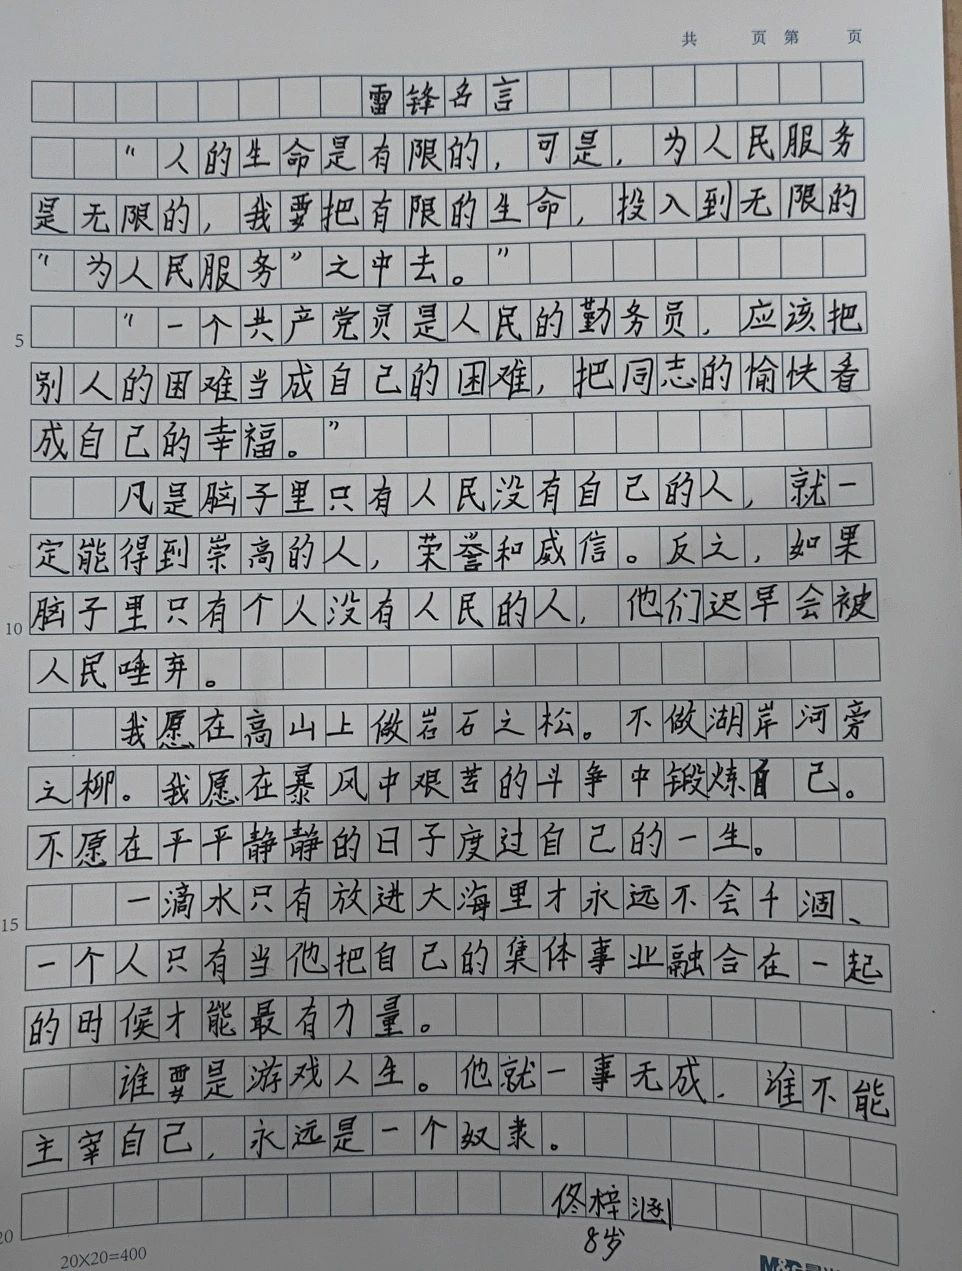 共 页 第 页
雷锋名言
“人的生命是有限的,可是,为人民服务
是无限的,我要把有限的生命,投入到无限的
“为人民服务”之中去。”
“一个共产党员是人民的勤务员,应该把
5
别人的困难当成自己的困难,把同志的愉快看
成自己的幸福。”
凡是脑子里只有人民没有自己的人,就一
定能得到崇高的人,荣誉和威信。反之,如果
脑子里只有个人没有人民的人,他们迟早会被
10
人民唾弃。
我愿在高山上做岩石之松。不做湖岸河旁
之柳。我愿在暴风中艰苦的斗争中锻炼自己。
不愿在平平静静的日子度过自己的一生。
一滴水只有放进大海里才永远不会干涸、
15
一个人只有当他把自己的集体事业融合在一起
的时候才能最有力量。
谁要是游戏人生。他就一事无成.谁不能
主宰自己,永远是一个奴隶。
佟梓涵
20
8岁
20X20=400
M&G晨光